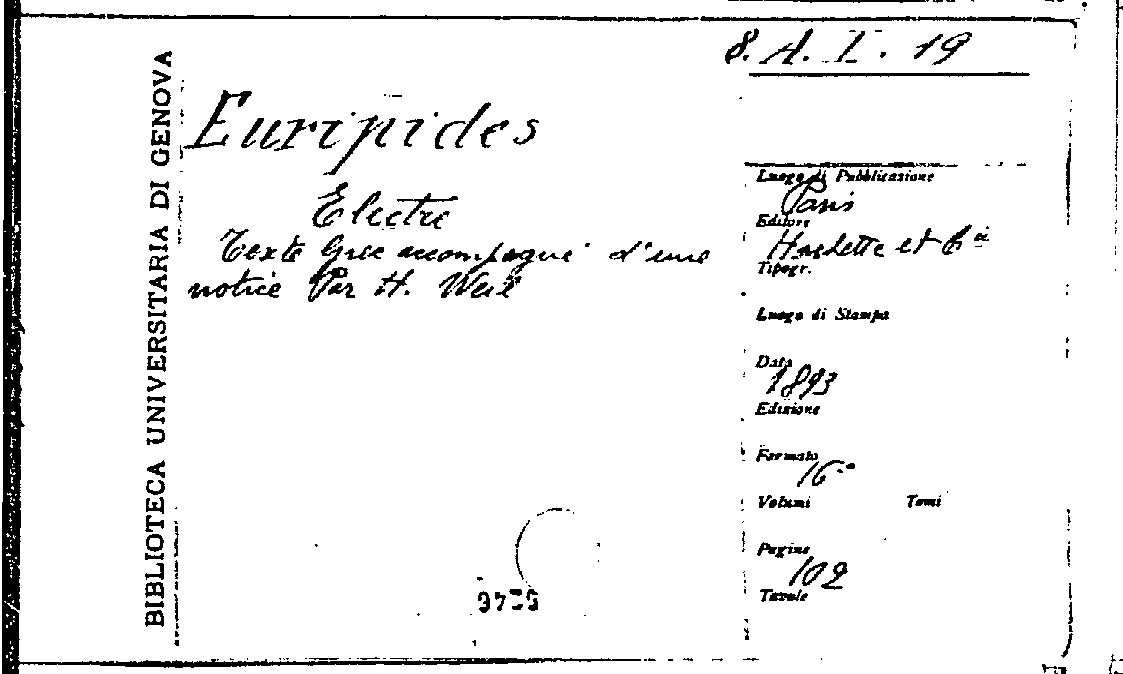 8. A. I. 19
BIBLIOTECA UNIVERSITARIA DI GENOVA
Euripides
Electre
Texte Grec accompagné d'une
notice Par H. Weil
Luogo di Pubblicazione
Paris
Editore
Hachette et Cie
Tipogr.
Luogo di Stampa
Data
1893
Edizione
Formato
16°
Volumi Tomi
Pagine
102
Tavole